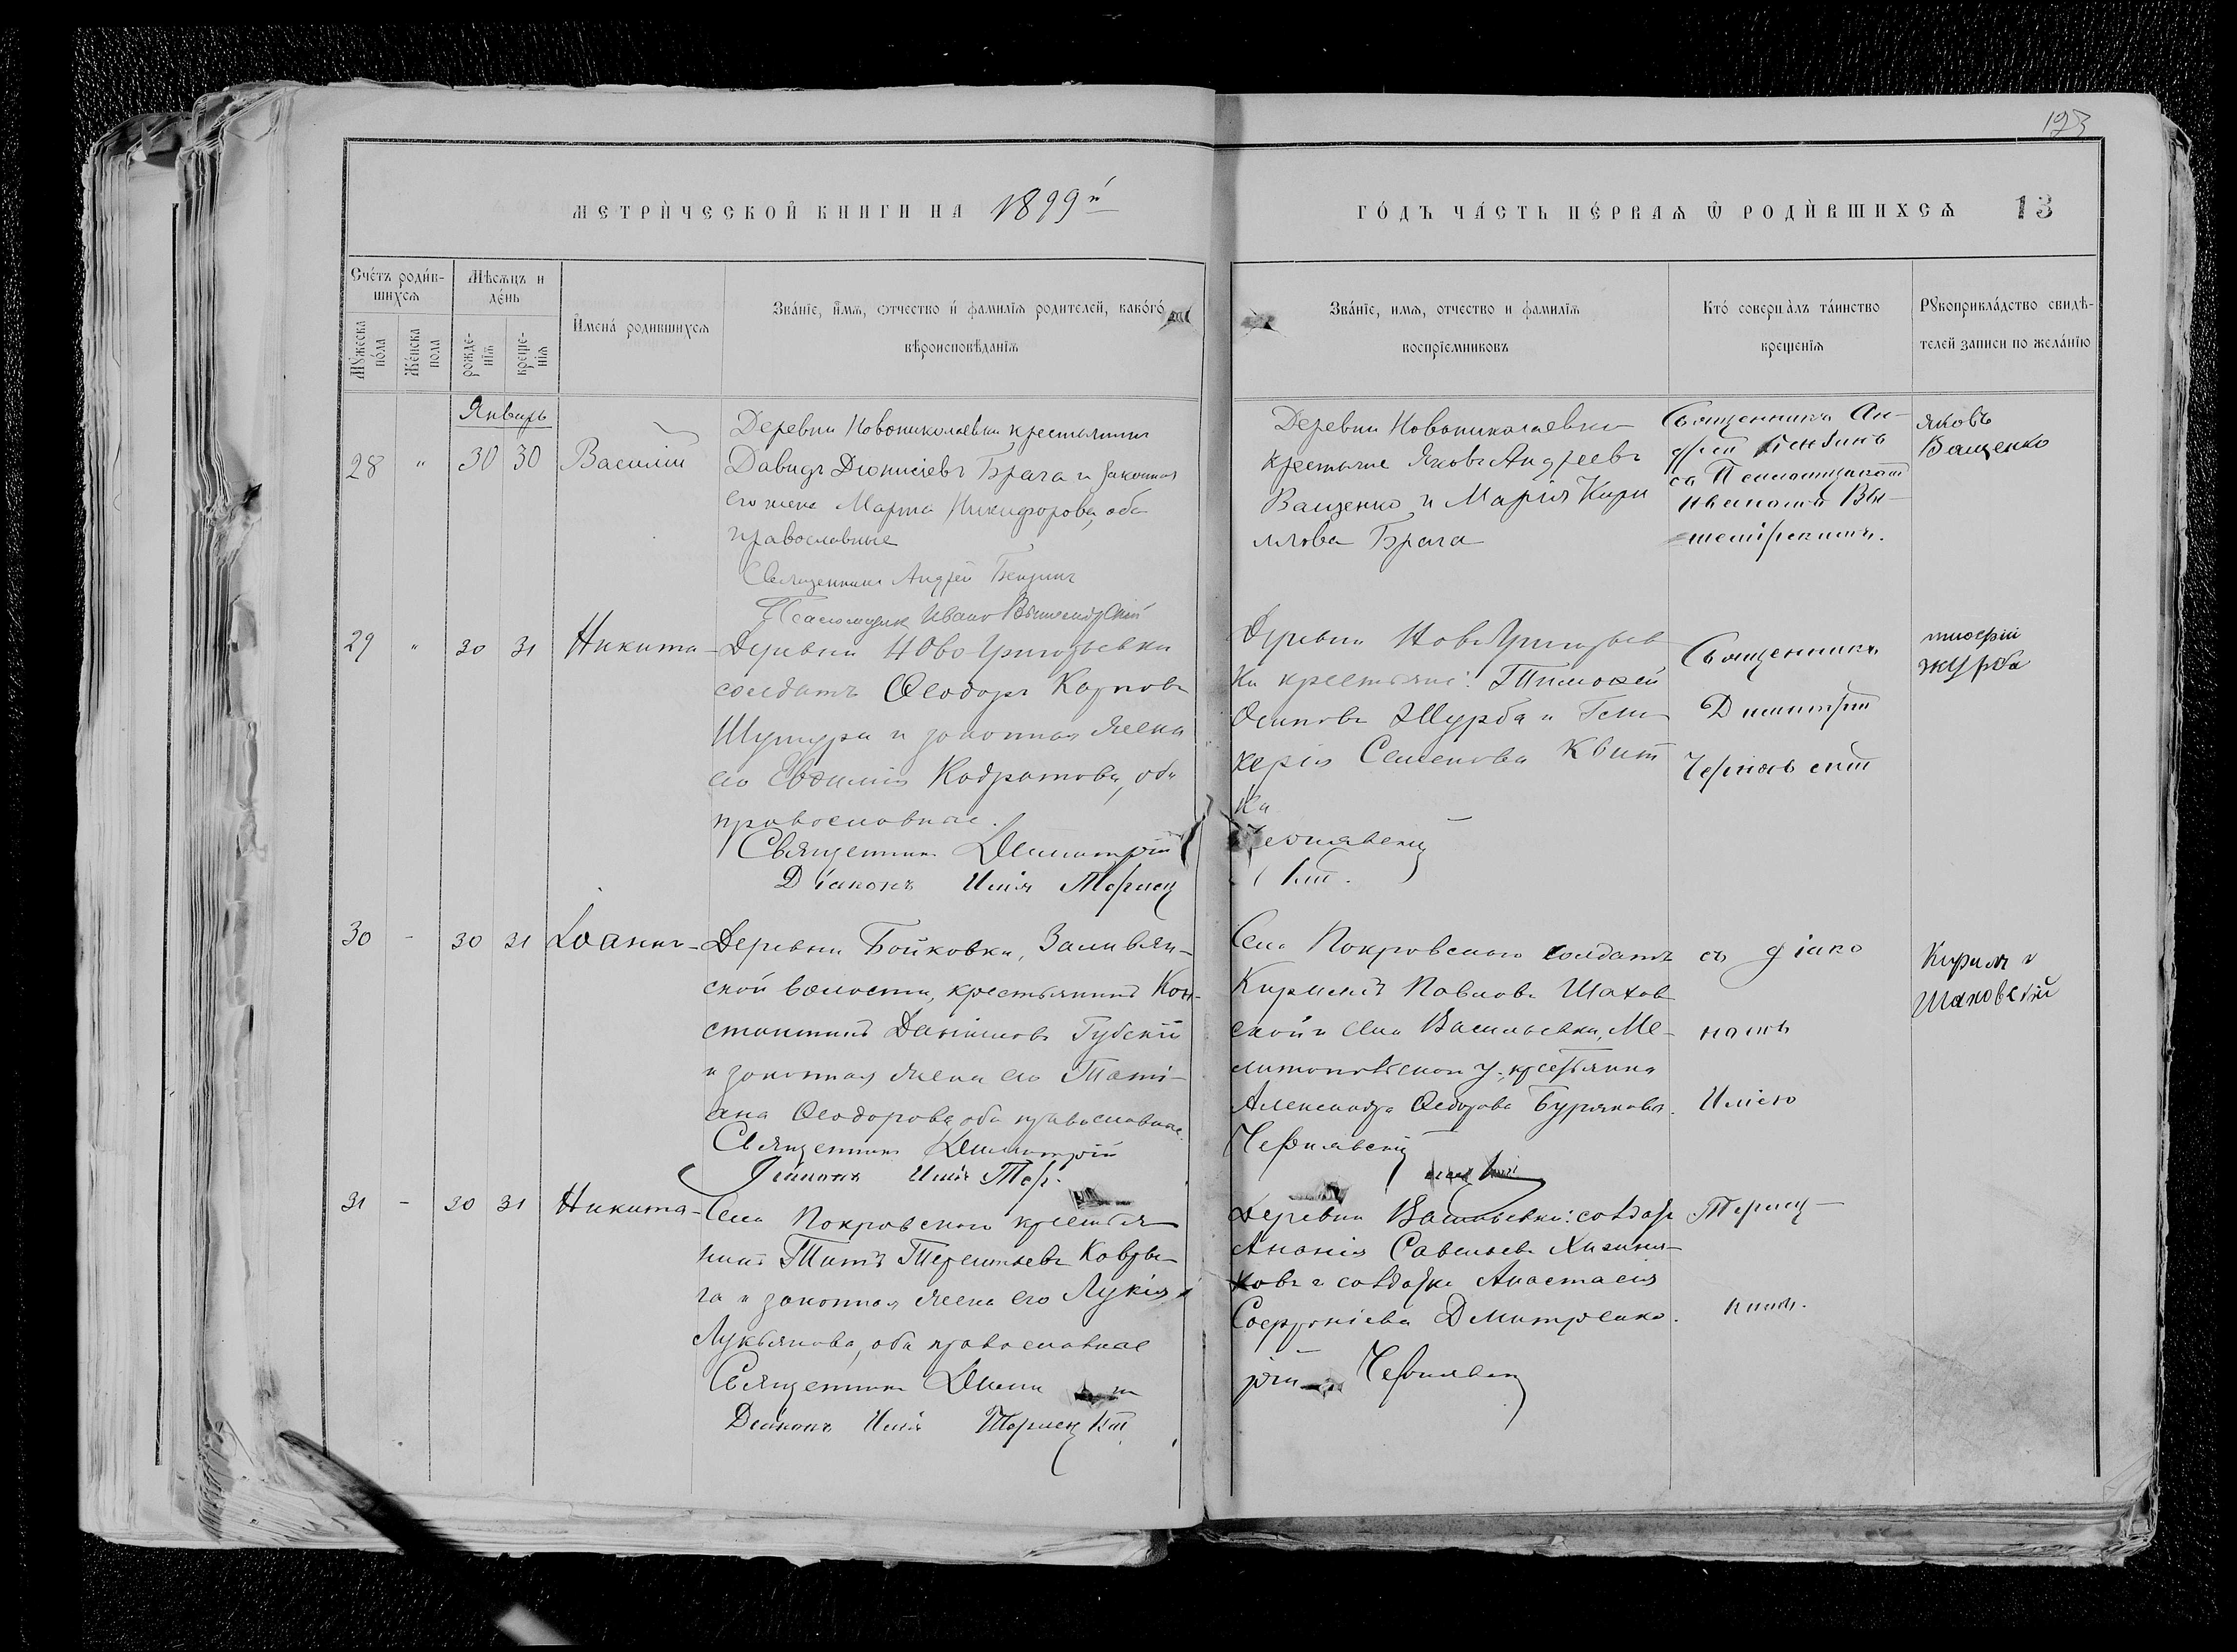 193
МЕТРИ́ЧЕСКОЙ КНИГИ НА 1899й
ГО́ДЪ ЧА́СТЬ ПЕ́РВАѦ Ѿ РОДИ́ВШИХСѦ 13
Сче́тъ роди́в-
шихсѧ
Мꙋ́жеска
по́ла
Же́нска
пола
Мѣсѧцъ и
де́нь
рожде-
нїѧ
креще-
нїѧ
И҆мена́ родившихсѧ
Зва́нїе, и҆́мѧ, ѻтчество и҆ фамилїѧ родителей, како́гѡ
вѣроисповѣданїѧ
Зва́нїе, имѧ, отчество и фамилїѧ
воспрїемниковъ
Кто́ соверша́лъ та́инство
крещенїѧ
Рꙋкоприкла́дство свидѣ-
телей записи по жела́нїю
Январь
28 " 30 30 Василій
Деревни Новониколаевки крестьянинъ
Давидъ Діонисіевъ Брага и законная
его жена Марта Никифорова, оба
православные
Священникъ Андрей
Псаломщик Иванъ
Деревни Новониколаевки
крестьяне Яковъ Андреевъ
Ващенко и Марія Кири
лова Брага
Священникъ Ан-
дрей
съ Псаломщикомъ
Иваномъ Вы-
Яковъ
Ващенко
29 " 30 31 Никита
Деревни Ново Григорьевки
солдатъ Ѳеодоръ Карповъ
и законная жена
его Евдокія Кодратова, оба
православные.
Священникъ Димитрій
Діаконъ Илія Терлец
Деревни Ново Григорьев
ки крестьяне: Тимоѳей
Осиповъ Журба и Гли
керія Семенова Квит
ка
Чернявскій
кій.
Священникъ
Димитрій
Чернявскій
Тимофій
журба
30 - 30 31 Іоаннъ
Деревни Бойковки,
ской волости, крестьянинъ Кон-
стантинъ Даніиловъ Губскій
и законная жена его Таті-
ана Ѳеодорова, оба православные.
Священникъ Димитрій
Діаконъ Илія Тер.
Села Покровскаго солдатъ
Кирилъ Павловъ Шахов
ской и села Васильевки, Ме-
литопольскаго у. крестьянка
Александра Ѳедорова Бурякова.
Чернявскій
съ діако
номъ
Иліею
Кирилъ
Шаховской
31 - 30 31 Никита
Села Покровскаго крестья
нинъ Титъ Терентьевъ Ковры-
га и законная жена его Лукія
Лукьянова, оба православные
Священникъ Дими
Діаконъ Илія Терлецкій
Деревни Васильевки: солдатъ
Ананія Савельевъ
ковъ и солдатка Анастасія
Софроніева Дмитренко.
рій Чернявскій
Терлец-
кимъ.